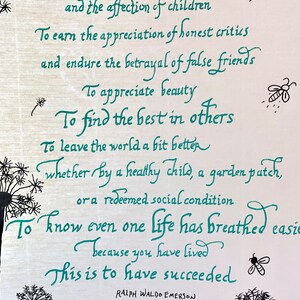 and the affection of children
To earn the appreciation of honest critics
and endure the betrayal of false friends
To appreciate beauty
To find the best in others
To leave the world a bit better
whether by a healthy child, a garden patch,
or a redeemed social condition
To know even one life has breathed easi
because you have lived
This is to have succeeded
RALPH WALDO EMERSON